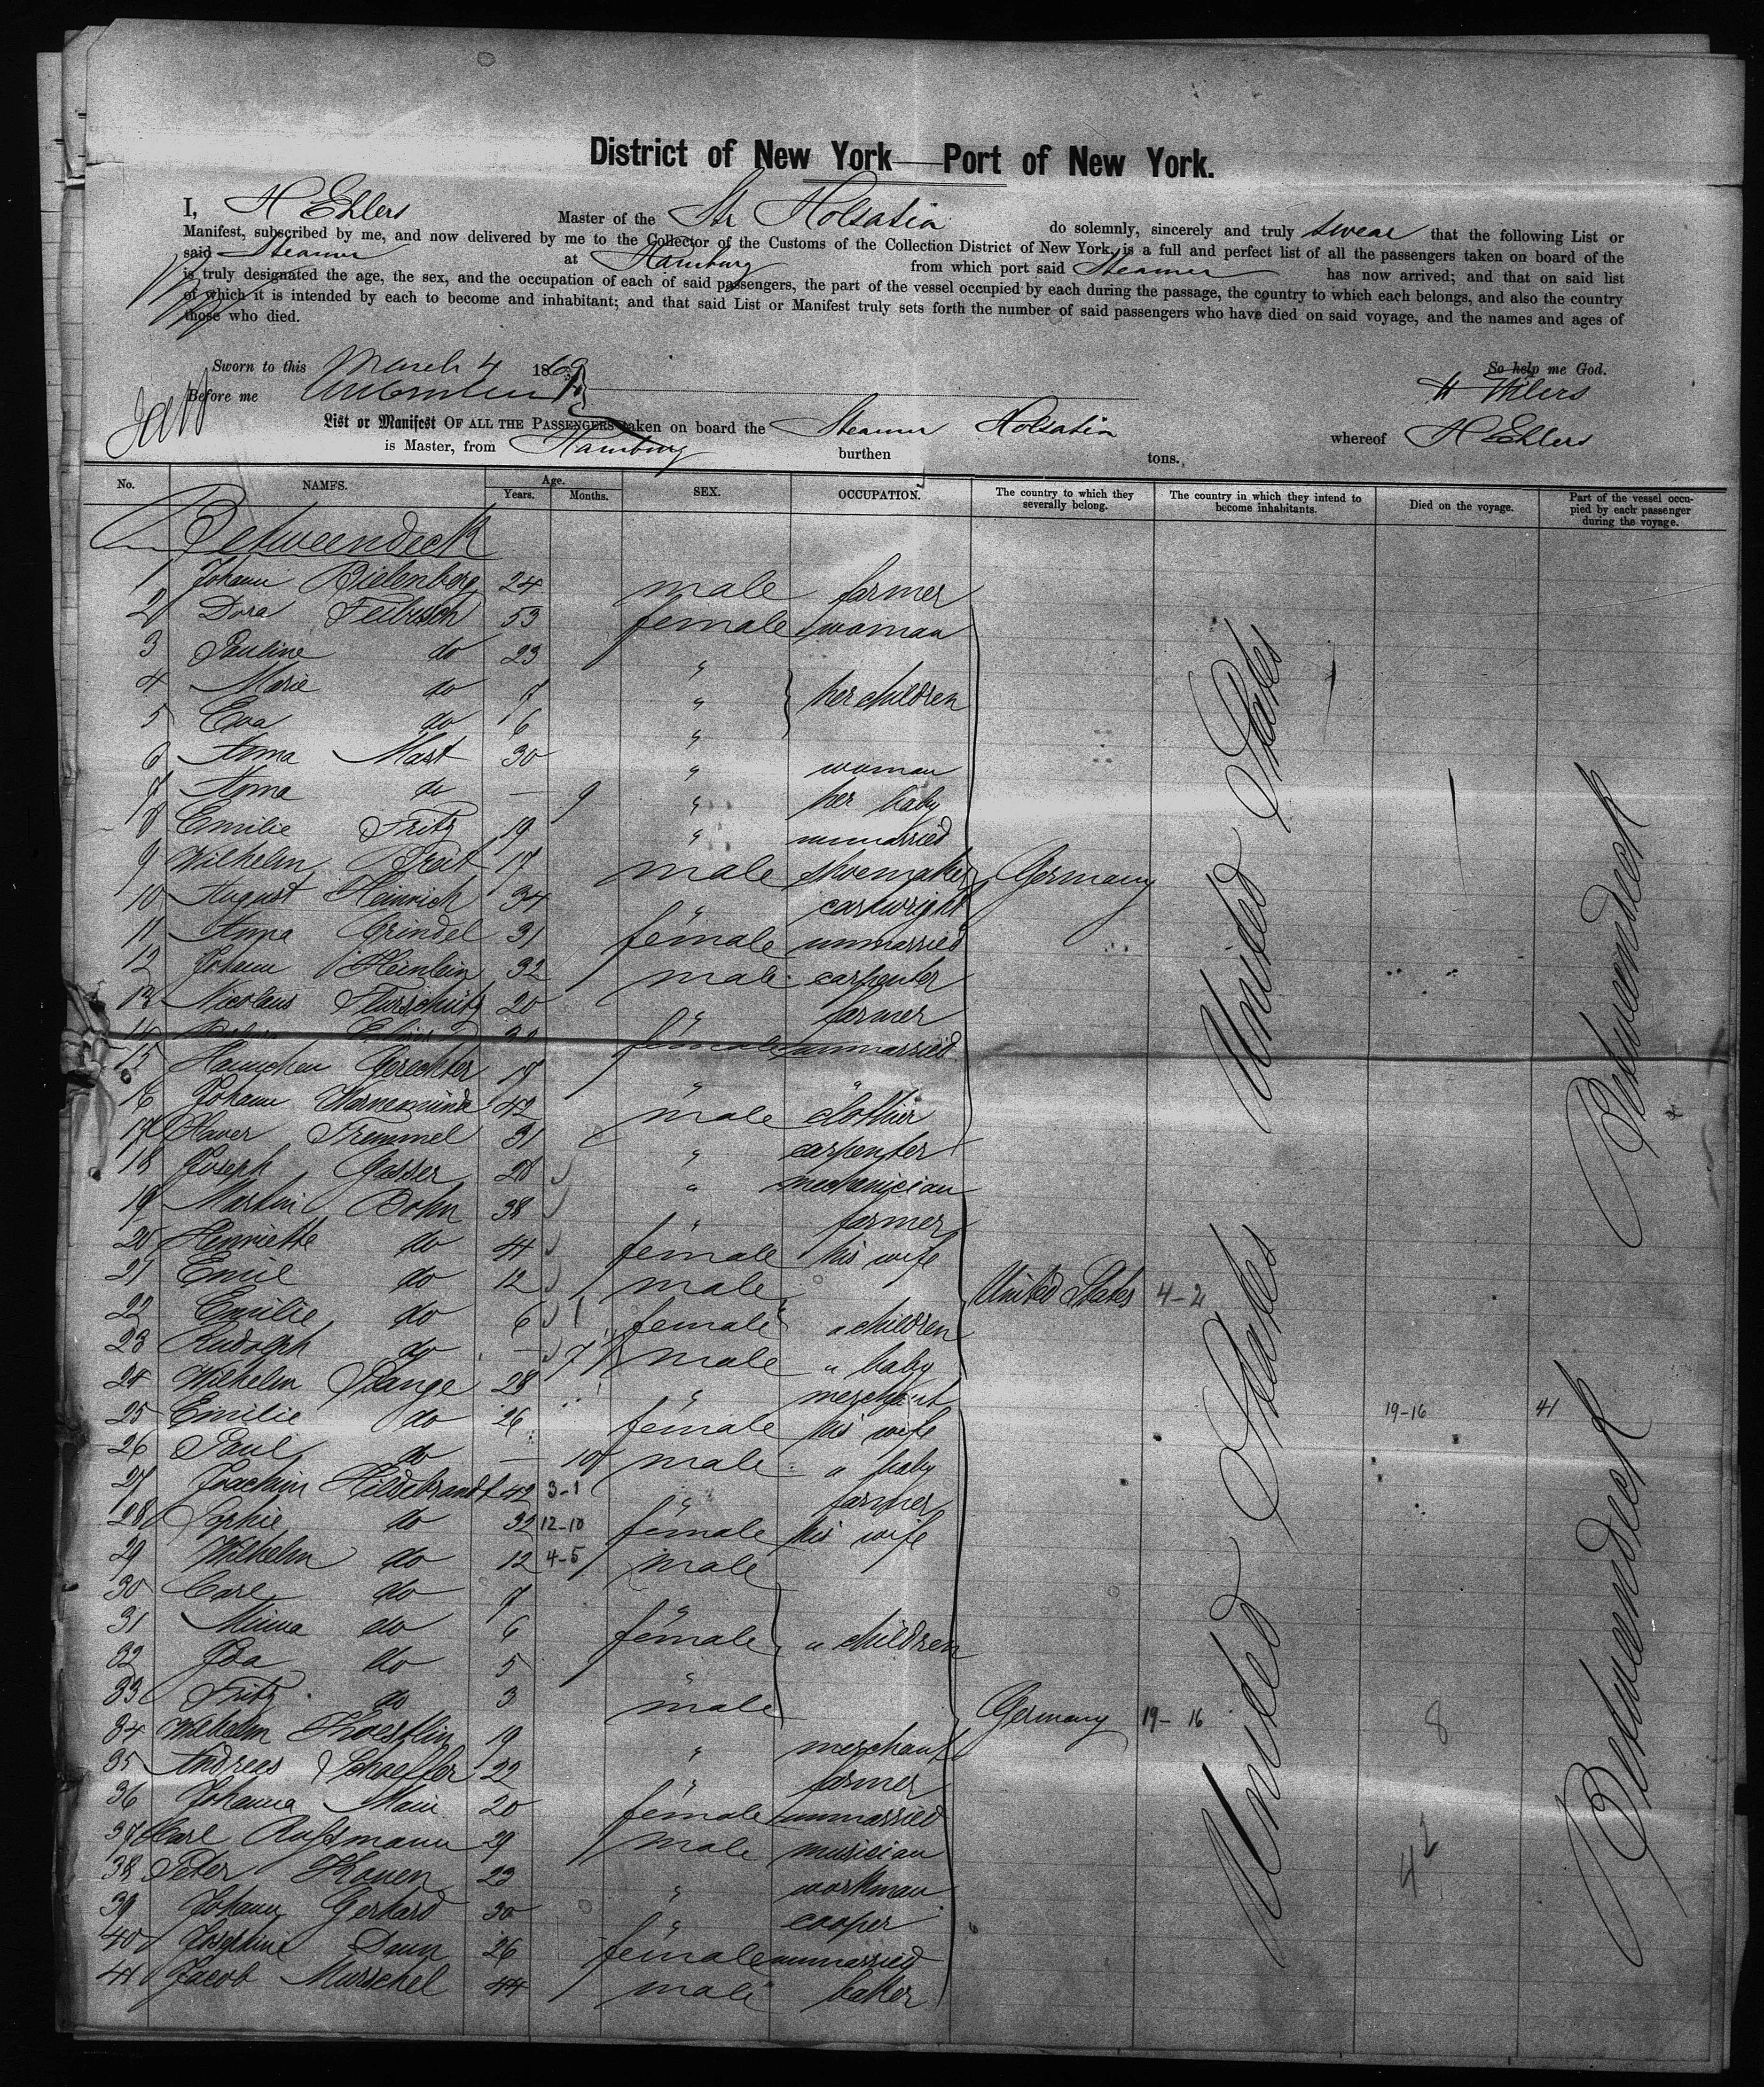 District of New York—Port of New York.
I, H Ehlers Master of the Str Holsatia do solemnly, sincerely and truly swear that the following List or
Manifest, subscribed by me, and now delivered by me to the Collector of the Customs of the Collection District of New York, is a full and perfect list of all the passengers taken on board of the
said Steamer at Hamburg from which port said Steamer has now arrived; and that on said list
is truly designated the age, the sex, and the occupation of each of said passengers, the part of the vessel occupied by each during the passage, the country to which each belongs, and also the country
of which it is intended by each to become and inhabitant; and that said List or Manifest truly sets forth the number of said passengers who have died on said voyage, and the names and ages of
those who died.
Sworn to this March 4 1869 So help me God.
Before me H Ehlers
List or Manifest OF ALL THE PASSENGERS taken on board the Steamer Holsatia whereof H Ehlers
is Master, from Hamburg burthen tons.
No. NAMES. Age. Years. Months. SEX. OCCUPATION. The country to which they severally belong. The country in which they intend to become inhabitants. Died on the voyage. Part of the vessel occupied by each passenger during the voyage.
Betweendeck
1 Johann Bielenberg 24 male farmer
2 Dora Feibusch 53 female woman
3 Pauline do 23 "
4 Marie do 7 " her children
5 Eva do 6 "
6 Anna Mast 30 " woman
7 Anna do — 9 " her baby
8 Emilie Fritz 19 " unmarried
9 Wilhelm Breit 17 male shoemaker Germany
10 August Heinrich 34 " cartwright
11 Anna Grindel 31 female unmarried
12 Johann Heinlein 32 male carpenter
13 Nicolaus Flurschütz 20 " farmer
14 female unmarried
15 Hannchen Gerechter 17 " "
16 Johann Warnemünde 42 male clothier
17 Xaver Tremmel 31 " carpenter
18 Joseph Gasser 28 " mechanician
19 Martin Bohn 38 " farmer
20 Henriette do 44 female his wife
21 Emil do 12 male United States 4-2
22 Emilie do 6 female " children
23 Rudolph do — 7 male " baby
24 Wilhelm Stange 28 " merchant
25 Emilie do 26 female his wife 19-16 41
26 Paul do — 10 male " baby
27 Joachim Hildebrandt 42 3-1 " farmer
28 Sophie do 32 12-10 female his wife
29 Wilhelm do 12 4-5 male
30 Carl do 7 "
31 Minna do 6 female " children
32 Ida do 5 "
33 Fritz do 3 male Germany 19-16 8
34 Wilhelm Koestlin 19 " merchant
35 Andrees Schaeffer 22 " farmer
36 Johanna Main 20 female unmarried
37 Carl Rußmann 29 male musician
38 Peter Konen 23 " workman 42
39 Johann Gerhard 30 " cooper
40 Josephine Daun 26 female unmarried
41 Jacob Murschel 44 male baker
United States
United States
Betweendeck
Betweendeck